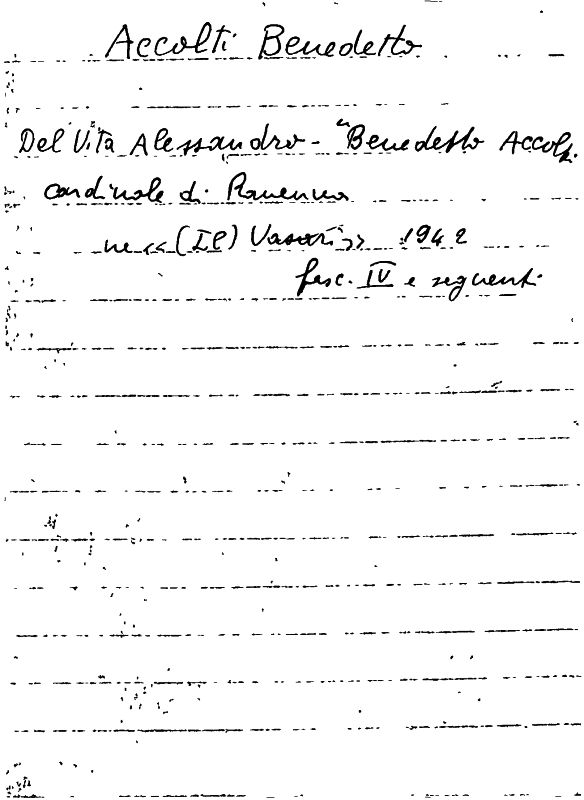 Accolti Benedetto
Del Vita Alessandro - "Benedetto Accolti
cardinale di Ravenna
ne << (Il) Vasari >> 1942
fasc. IV e seguenti